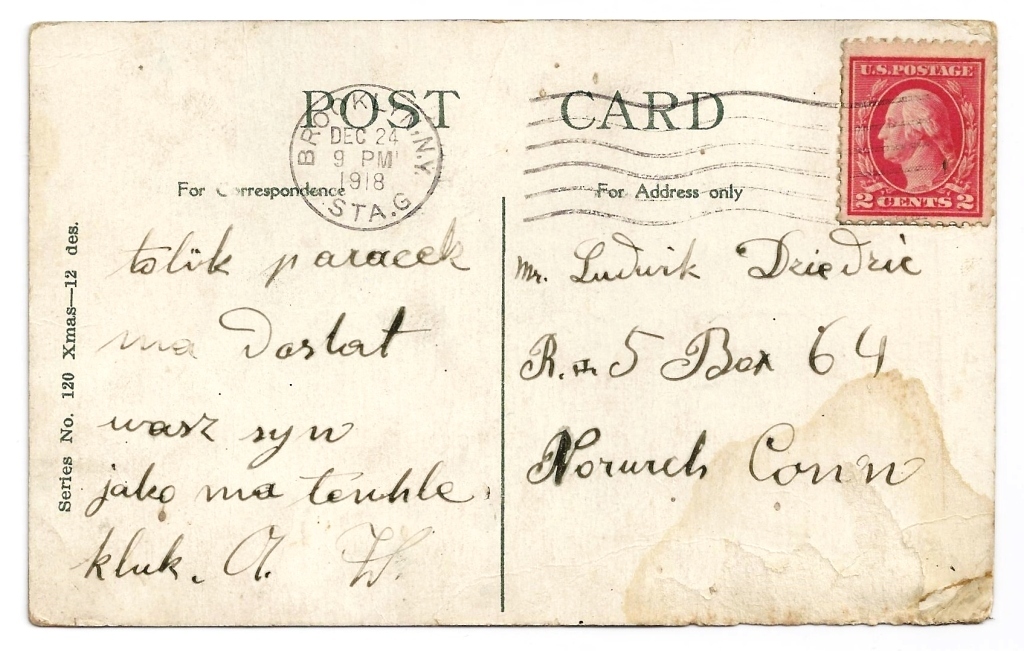 POST CARD
BROOKLYN, N.Y.
DEC 24
9 PM
1918
STA. G
U.S. POSTAGE
2 CENTS 2
For Correspondence
For Address only
Series No. 120 Xmas—12 des.
tolik paraeek
ma Dostat
wasz syn
jako ma tenhle
kluk. A. W.
Mr. Ludwik Dziedzic
R. # 5 Box 64
Norwich Conn